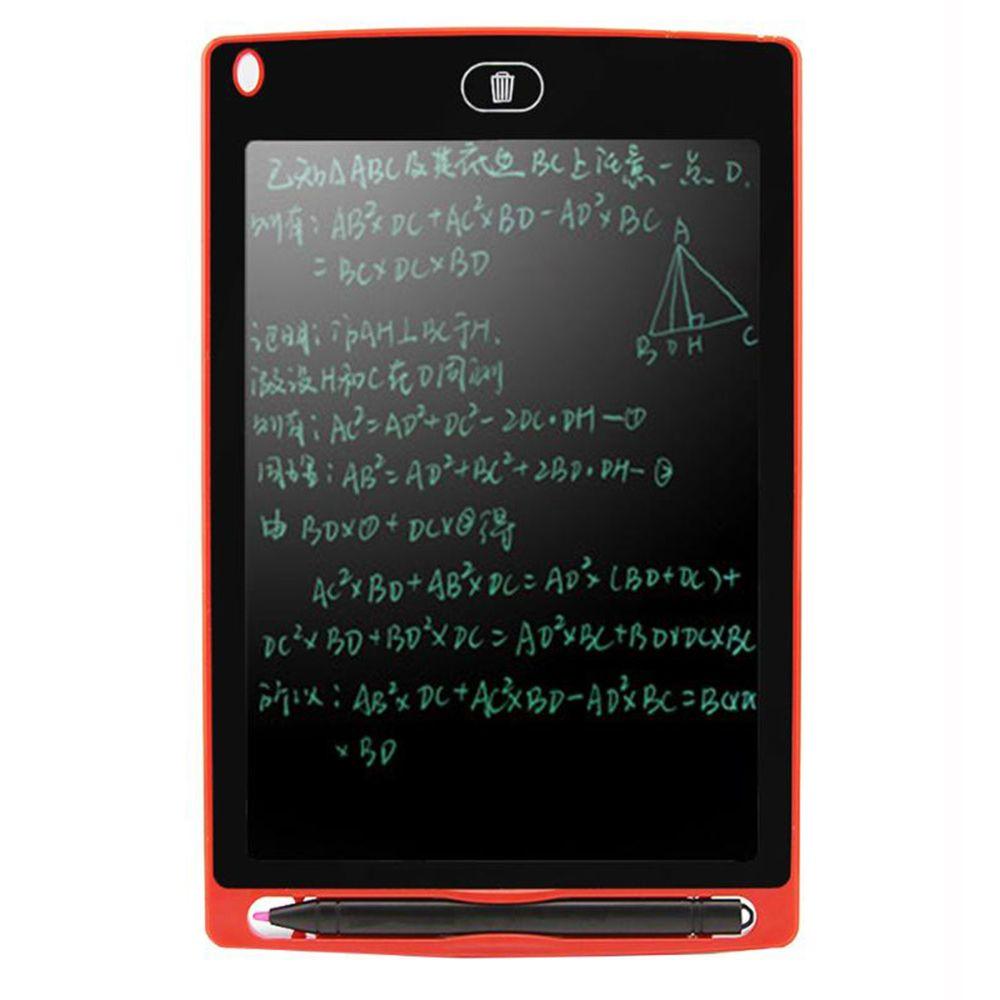 已知△ABC及其底边BC上任意一点D.
则有:AB²×DC+AC²×BD-AD²×BC
=BC×DC×BD
A
B D H C
证明:作AH⊥BC于H.
假设H和C在D同侧
则有:AC²=AD²+DC²-2DC·DH—①
同理:AB²=AD²+BC²+2BD·DH-②
由BD×①+DC×②得
AC²×BD+AB²×DC=AD²×(BD+DC)+
DC²×BD+BD²×DC=AD²×BC+BD×DC×BC
所以:AB²×DC+AC²×BD-AD²×BC=BC×DC
×BD